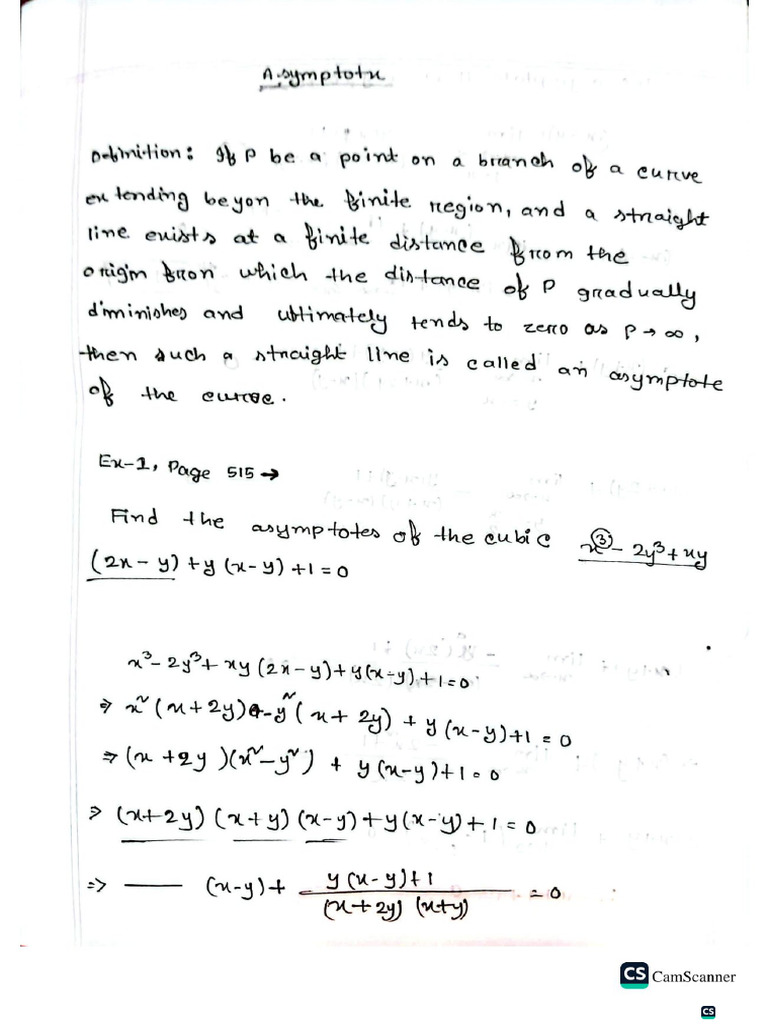 Asymptote
Definition: If P be a point on a branch of a curve
extending beyon the finite region, and a straight
line exists at a finite distance from the
origin fron which the distance of P gradually
diminishes and ultimately tends to zero as P → ∞,
then such a straight line is called an asymptote
of the curve.
Ex-1, Page 515 →
Find the asymptotes of the cubic x³ - 2y³ + xy
(2x - y) + y (x - y) + 1 = 0
x³ - 2y³ + xy (2x - y) + y(x - y) + 1 = 0
⇒ x² (x + 2y) - y² (x + 2y) + y (x - y) + 1 = 0
⇒ (x + 2y) (x² - y²) + y(x - y) + 1 = 0
⇒ (x + 2y) (x + y) (x - y) + y (x - y) + 1 = 0
⇒ — (x - y) + y (x - y) + 1 / (x + 2y) (x + y) = 0
CS CamScanner
CS